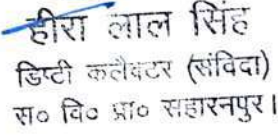 हीरा लाल सिंह
डिप्टी कलैक्टर (संविदा)
स० वि० प्रा० सहारनपुर।